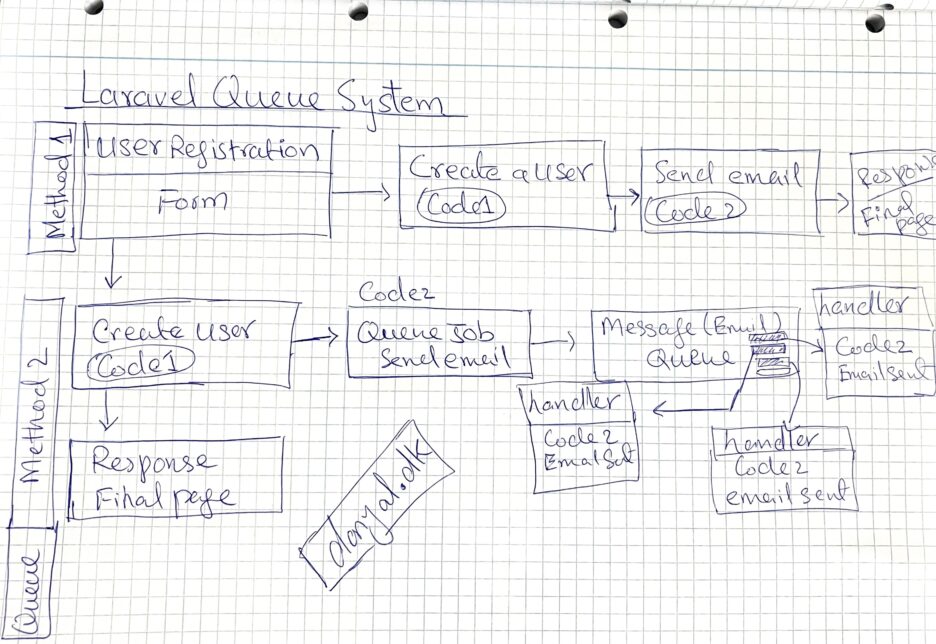 Laravel Queue System
Method 1
User Registration
Form
Create a user
Code1
Send email
Code 2
Respons
Final
page
Method 2
Create user
Code1
Code2
Queue job
Send email
Message (Email)
Queue
handler
Code2
Email sent
handler
Code 2
Email Set
handler
Code2
email sent
Response
Final page
danyal.dk
Queue